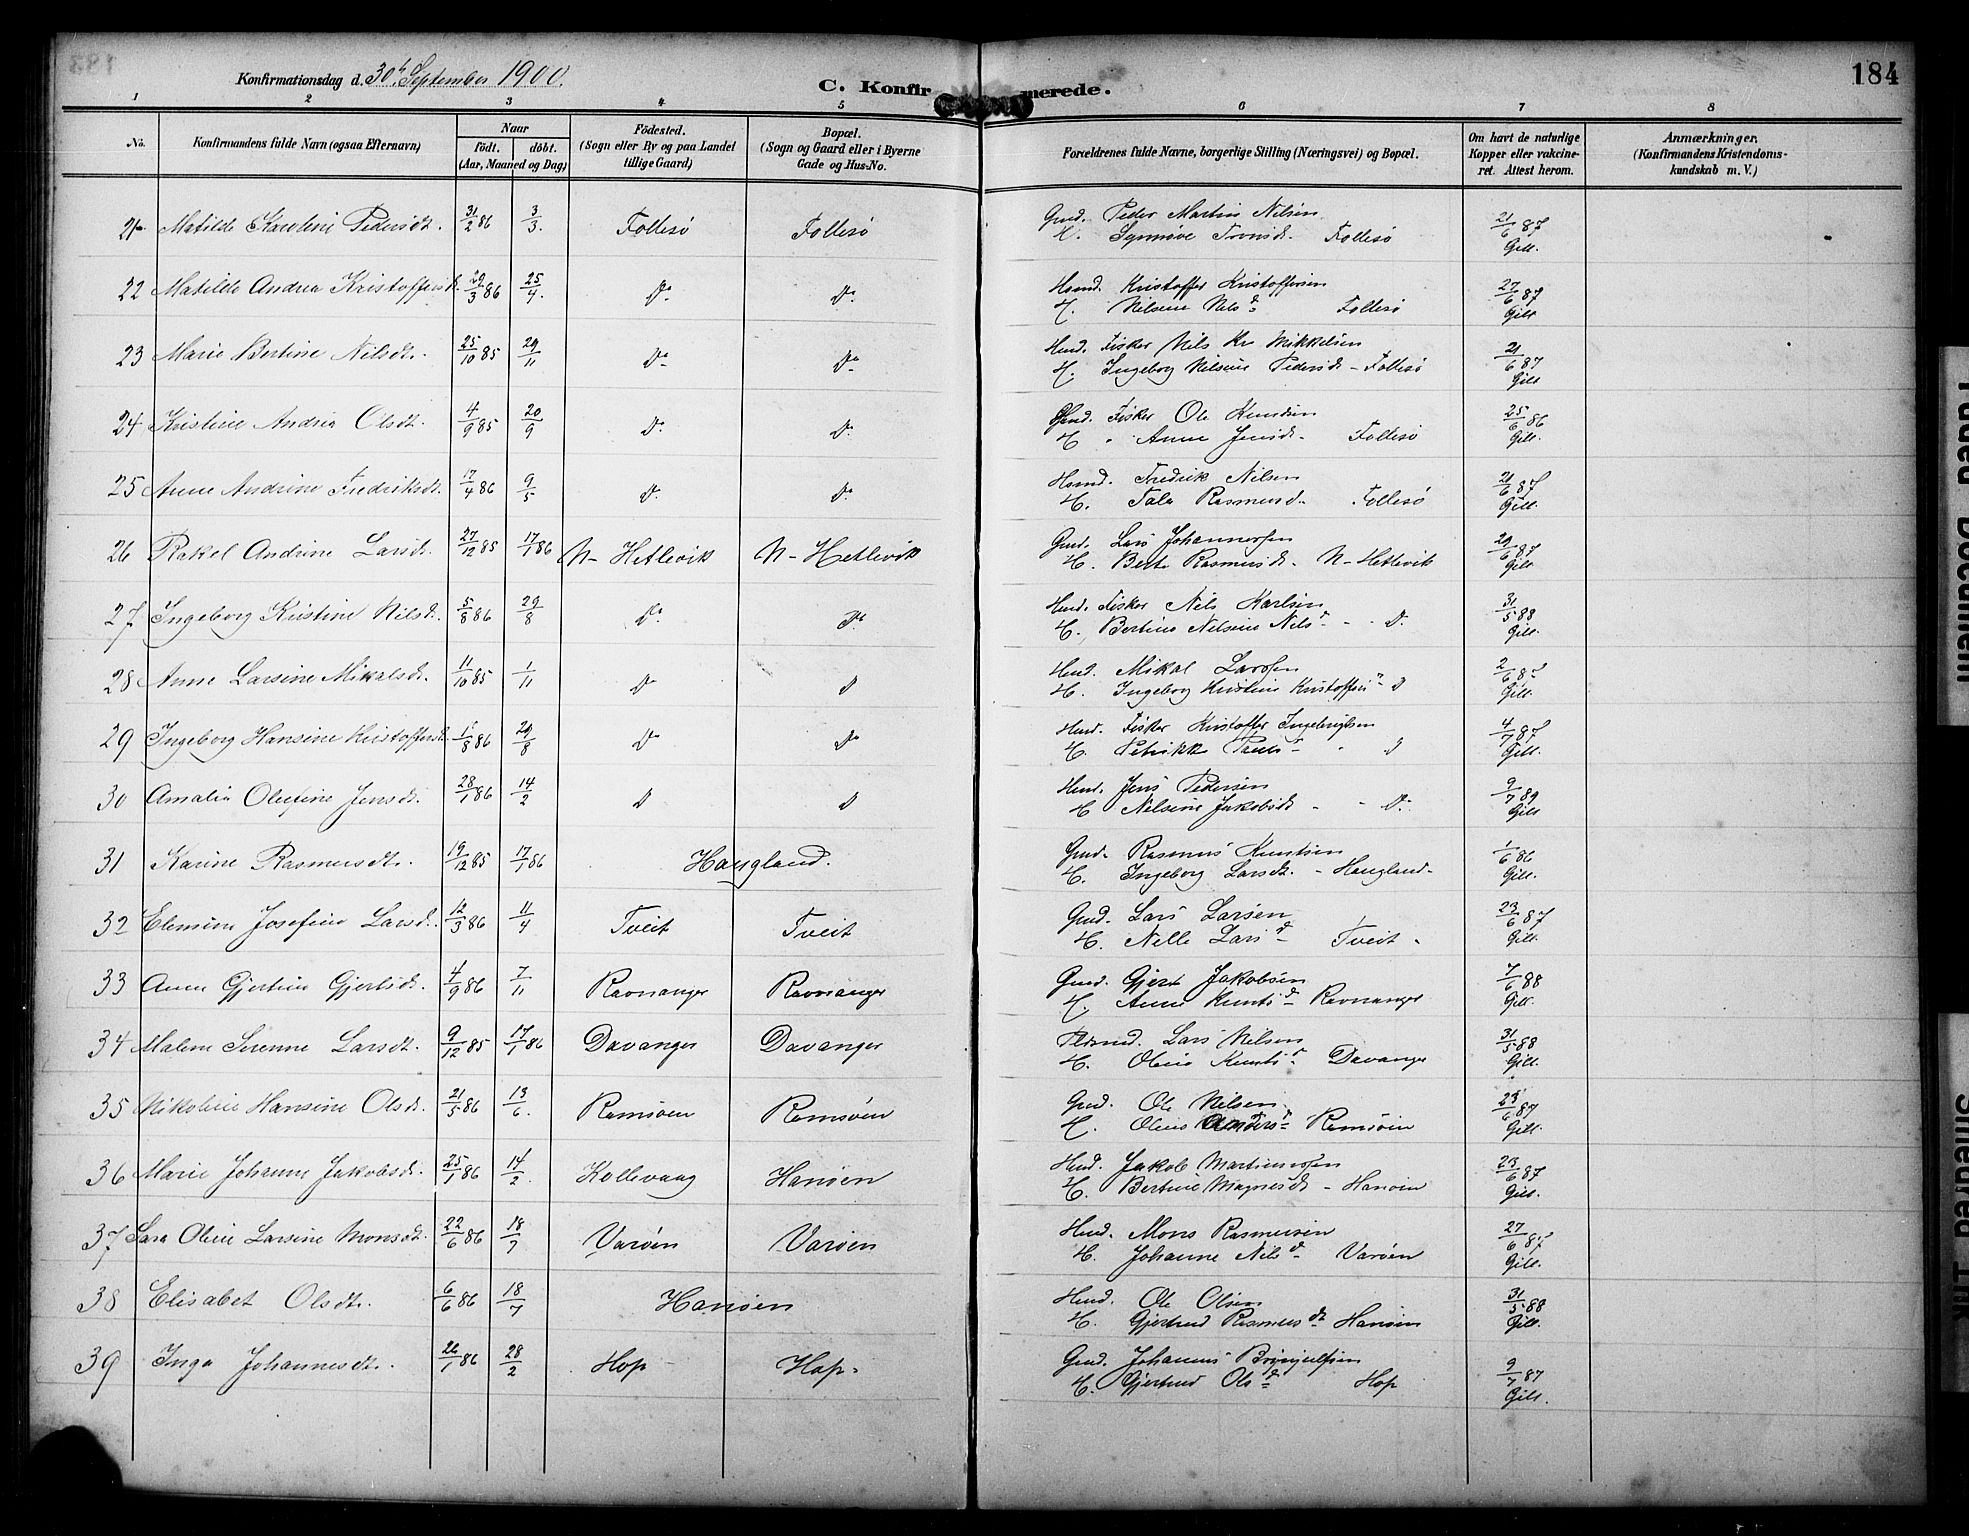 184
Konfirmationsdag d. 30th September 1900.
C. Konfirmerede.
1 2 3 4 5 6 7 8
No. Konfirmandens fulde Navn (ogsaa Efternavn) Naar født. døbt. (Aar, Maaned og Dag) Födested. (Sogn eller By og paa Landet tillige Gaard) Bopæl. (Sogn og Gaard eller i Byerne Gade og Hus-No. Forældrenes fulde Navne, borgerlige Stilling (Næringsvei) og Bopæl. Om havt de naturlige Kopper eller vakcineret. Attest herom. Anmærkninger, (Konfirmandens Kristendomskundskab m. V.)
21 Matilde Karoline Pedersdt. 31/2 86 3/3. Follesø Follesø Gmd. Peder Martin Nilsen 21/6 87
H. Synnøve Tronsd. Follesø Gill.
22 Matilde Andrea Kristoffersd. 29/3 86 25/4. Do Do Hsmd. Kristoffer Kristoffersen 27/6 87
H. Nilsine Nilsd Follesø Gill
23 Marie Bertine Nilsdt. 25/10 85 29/11 Do Do Hmd. Fisker Nils Kr Mikkelsen 21/6 87
H. Ingeborg Nilsine Pedersd - Follesø Gill
24 Kristine Andrea Olsdt. 4/9 85 20/9 Do Do Gmd. Fisker Ole Knudsen 25/6 86
H " Anne Jensd. Follesø Gill.
25 Anne Andrine Fredriksdt. 17/4 86 9/5 Do Do Hsmd. Fredrik Nilsen 21/6 87
H. Tale Rasmusd. Follesø Gill.
26 Rakel Andrine Larsd. 27/12 85 17/1 86 N- Hetlevik N- Hetlevik Gmd. Lars Johannessen 29/6 87
H. Berte Rasmusd. N- Hetlevik Gill.
27 Ingeborg Kristine Nilsd. 5/8 86 29/8 Do Do Hmd. Fisker Nils Karlsen 31/5 88
H. Bertine Nilsine Nilsd - D. Gill.
28 Anne Larsine Mikalsdt. 11/10 85 1/11 Do D Hmd. Mikal Larssen 2/6 87
H. Ingeborg Kristine Kristoffersd D Gill.
29 Ingeborg Hansine Kristoffersd 1/8 86 29/8 Do Do Hmd. Fisker Kristoffer Ingebrigtsen 4/7 87
H. Petrikke Pauls - D Gill.
30 Amalia Olufine Jensdt. 28/1 86 14/2 D D Hmd. Jens Pedersen 9/7 89
H Nilsine Jakobsd - - D. Gill
31 Karine Rasmusdt. 19/12 85 17/1 86 Haugland. Gmd. Rasmus Knutsen 1/6 86
H. Ingeborg Larsdt. - Haugland - Gill.
32 Elenine Josefine Larsd. 12/3 86 11/4 Tveit Tveit Gmd. Lars Larsen 23/6 87
H. Nille Larsd Tveit - Gill.
33 Anne Gjertine Gjertsdt. 4/9 86 7/11 Ravnanger Ravnanger Gmd. Gjert Jakobsen 7/6 88
H. Anne Knutsd Ravnanger Gill.
34 Malene Serenne Larsdt. 9/12 85 17/1 86 Davanger Davanger Lars Nilsen 31/5 88
H. Oline Knutsd Davanger Gill.
35 Nikoline Hansine Olsd. 21/5 86 13/6. Ramsøen Ramsøen Gmd. Ole Nilsen 23/6 87
H. Oline Andersd Ramsøen Gill.
36 Marie Johanne Jakobsd. 25/1 86 14/2 Kollevaag Hanøen Hmd. Jakob Martinussen 23/6 87
H. Bertine Magnesd - Hanøen Gill.
37 Sara Oline Larsine Monsdt. 22/6 86 18/7 Varøen Varøen Hmd. Mons Rasmussen 27/6 87
H. Johanne Nilsd Varøen Gill.
38 Elisabet Olsdt. 6/6 86 18/7 Hanøen Hmd. Ole Olsen 31/5 88
H. Gjertrud Rasmusdt Hanøen Gill.
39 Inga Johannesdt. 26/1 86 28/2 Hop Hop. Gmd. Johannes Brynjulfsen 9/7 87
H. Gjertrud Olsd Hop Gill.